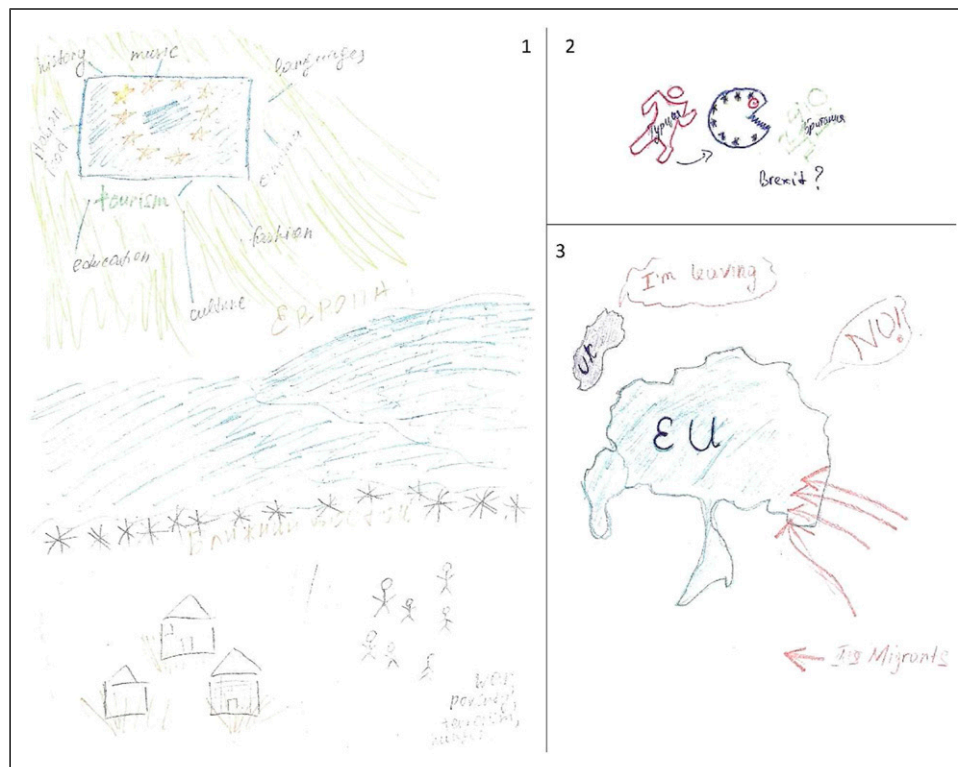 1
history
music
languages
tourism
education
fashion
culture
ЕВРОПА
Ближний восток
war,
poverty,
2
Турция
Британия
Brexit?
3
I'm leaving
UK
NO!!
EU
Migrants